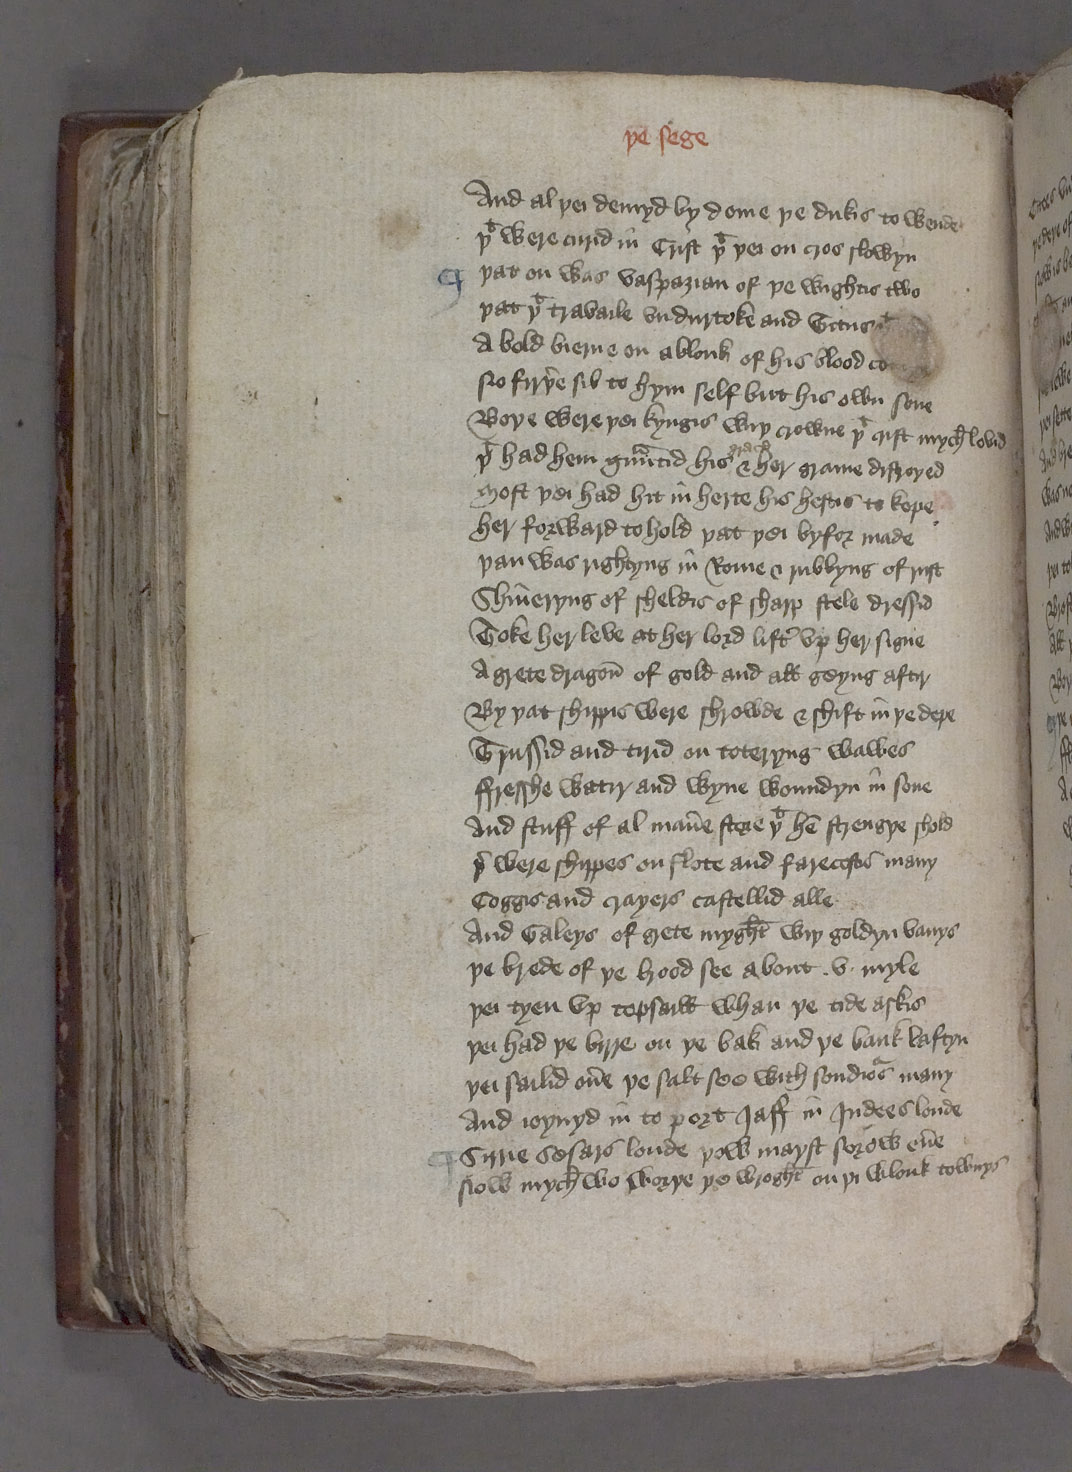 þe sege
And al þei demyd by dome þe dukis to wende
þᵗ were cirid in Crist þᵗ þei on cros slowyn
þat on was vaspazian of þe wightis two
þat þᵗ travaile vndurtoke and Titus
A bold bierne on a blonk of his blood
No firþe sib to hym self but his own sone
Boþe were þei kyngis wiþ crowne þᵗ crist mych lovid
þᵗ had hem grauntid his grace & her grame distroyed
Most þei had hit in herte his hestis to kepe
her forward to hold þat þei byfor made
þan was rightyng in Rome & rubbyng of rust
Shineryng of sheldis of sharp stele dressid
Toke her leve at her lord lift vp her signe
A grete dragon of gold and all goyng aftir
By þat shippis were shrowde & shift in þe depe
Trussid and tirid on toteryng wawes
ffresshe watir and wyne woundyn in sone
And stuff of al mane store þᵗ hē strengþe shold
þ were shippes on flote and farecostis many
Coggis and crayers castellid alle
And Galeys of grete myght wiþ goldyn vanys
þe brede of þe brood see about .v. myle
þei tyen vp topsaill whan þe tide askis
þei had þe birre on þe bak and þe bank laftyn
þei sailid ou̅e þe salt see with soudios many
And ioynyd in to port Jaff in Judees londe
Surie Cesars londe þow mayst sorow eu̅e
Now mych wo worþe þe wroght on þi wlonk townys